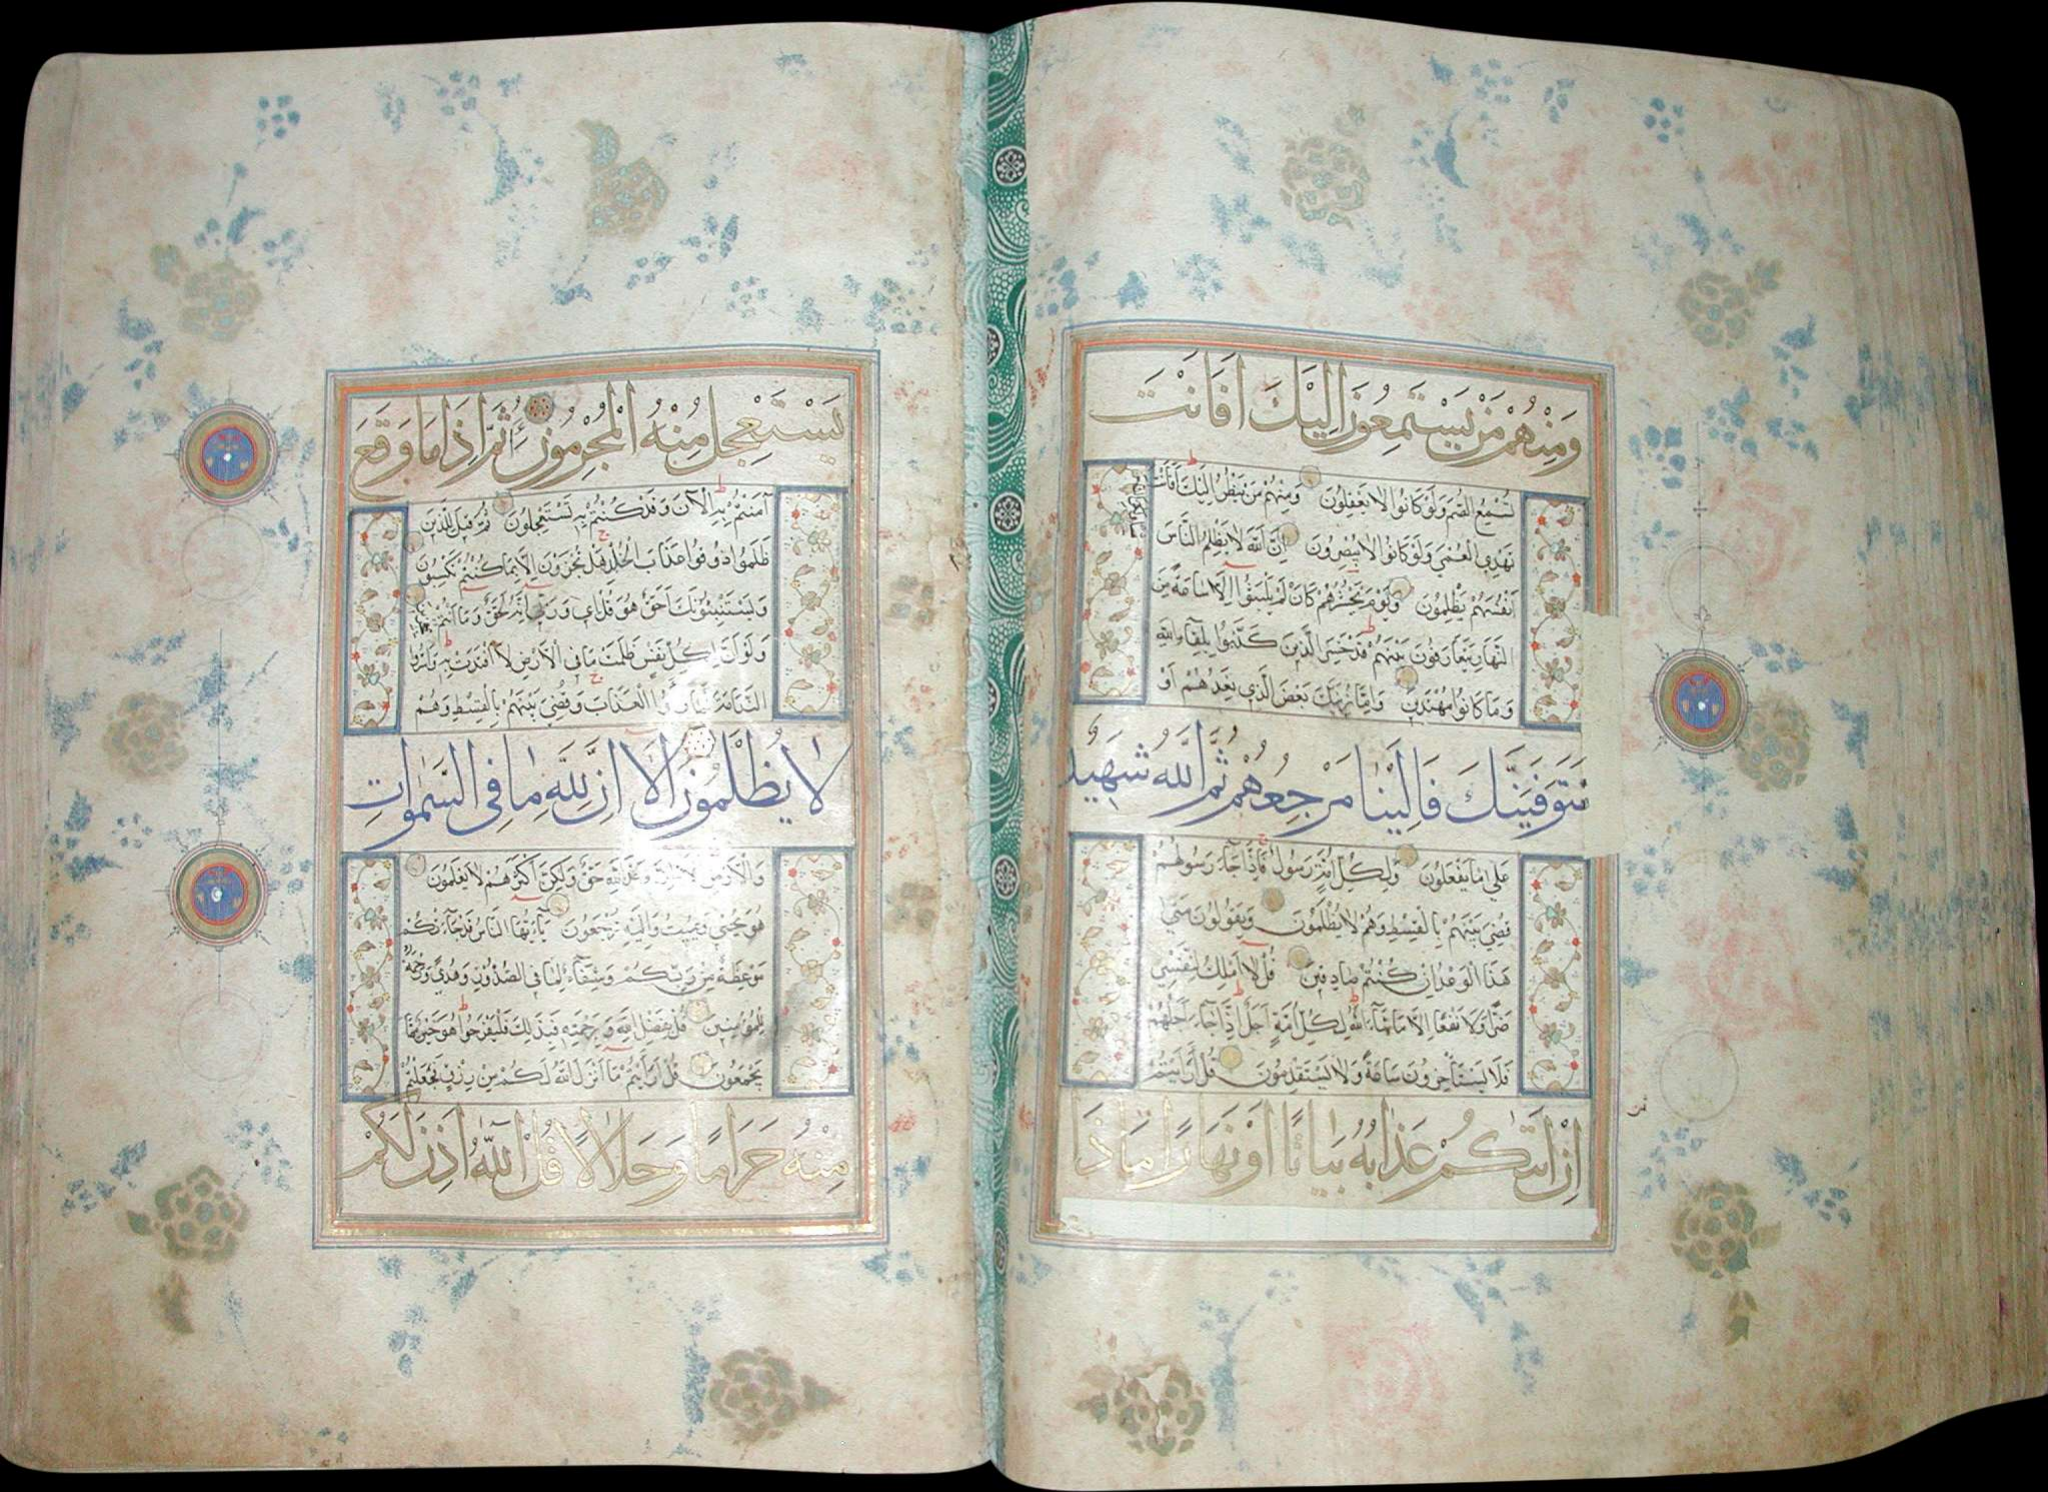 وَمِنْهُمْ مَنْ يَسْتَمِعُونَ اِلَيْكَ اَفَاَنْتَ
تُسْمِعُ الصُّمَّ وَلَوْ كَانُوا لَا يَعْقِلُونَ وَمِنْهُمْ مَنْ يَنْظُرُ اِلَيْكَ اَفَاَنْتَ
تَهْدِي الْعُمْيَ وَلَوْ كَانُوا لَا يُبْصِرُونَ اِنَّ اللّٰهَ لَا يَظْلِمُ النَّاسَ
اَنْفُسَهُمْ يَظْلِمُونَ وَيَوْمَ يَحْشُرُهُمْ كَاَنْ لَمْ يَلْبَثُوا اِلَّا سَاعَةً مِنَ
النَّهَارِ يَتَعَارَفُونَ بَيْنَهُمْ قَدْ خَسِرَ الَّذِينَ كَذَّبُوا بِلِقَاءِ اللّٰهِ
وَمَا كَانُوا مُهْتَدِينَ وَاِمَّا نُرِيَنَّكَ بَعْضَ الَّذِي نَعِدُهُمْ اَوْ
نَتَوَفَّيَنَّكَ فَاِلَيْنَا مَرْجِعُهُمْ ثُمَّ اللّٰهُ شَهِيدٌ
عَلٰى مَا يَفْعَلُونَ وَلِكُلِّ اُمَّةٍ رَسُولٌ فَاِذَا جَاءَ رَسُولُهُمْ
قُضِيَ بَيْنَهُمْ بِالْقِسْطِ وَهُمْ لَا يُظْلَمُونَ وَيَقُولُونَ مَتٰى
هٰذَا الْوَعْدُ اِنْ كُنْتُمْ صَادِقِينَ قُلْ لَا اَمْلِكُ لِنَفْسِي
ضَرًّا وَلَا نَفْعًا اِلَّا مَا شَاءَ اللّٰهُ لِكُلِّ اُمَّةٍ اَجَلٌ اِذَا جَاءَ اَجَلُهُمْ
فَلَا يَسْتَأْخِرُونَ سَاعَةً وَلَا يَسْتَقْدِمُونَ قُلْ اَرَاَيْتُمْ
اِنْ اَتٰيكُمْ عَذَابُهُ بَيَاتًا اَوْ نَهَارًا مَاذَا
يَسْتَعْجِلُ مِنْهُ الْمُجْرِمُونَ اَثُمَّ اِذَا مَا وَقَعَ
آمَنْتُمْ بِهِ آلْآنَ وَقَدْ كُنْتُمْ بِهِ تَسْتَعْجِلُونَ ثُمَّ قِيلَ لِلَّذِينَ
ظَلَمُوا ذُوقُوا عَذَابَ الْخُلْدِ هَلْ تُجْزَوْنَ اِلَّا بِمَا كُنْتُمْ تَكْسِبُونَ
وَيَسْتَنْبِئُونَكَ اَحَقٌّ هُوَ قُلْ اِي وَرَبِّي اِنَّهُ لَحَقٌّ وَمَا اَنْتُمْ
وَلَوْ اَنَّ لِكُلِّ نَفْسٍ ظَلَمَتْ مَا فِي الْاَرْضِ لَافْتَدَتْ بِهِ وَاَسَرُّوا
النَّدَامَةَ لَمَّا رَاَوُا الْعَذَابَ وَقُضِيَ بَيْنَهُمْ بِالْقِسْطِ وَهُمْ
لَا يُظْلَمُونَ اَلَا اِنَّ لِلّٰهِ مَا فِي السَّمٰوَاتِ
وَالْاَرْضِ اَلَا اِنَّ وَعْدَ اللّٰهِ حَقٌّ وَلٰكِنَّ اَكْثَرَهُمْ لَا يَعْلَمُونَ
هُوَ يُحْيِي وَيُمِيتُ وَاِلَيْهِ تُرْجَعُونَ يَا اَيُّهَا النَّاسُ قَدْ جَاءَتْكُمْ
مَوْعِظَةٌ مِنْ رَبِّكُمْ وَشِفَاءٌ لِمَا فِي الصُّدُورِ وَهُدًى وَرَحْمَةٌ
لِلْمُؤْمِنِينَ قُلْ بِفَضْلِ اللّٰهِ وَبِرَحْمَتِهِ فَبِذٰلِكَ فَلْيَفْرَحُوا هُوَ خَيْرٌ مِمَّا
يَجْمَعُونَ قُلْ اَرَاَيْتُمْ مَا اَنْزَلَ اللّٰهُ لَكُمْ مِنْ رِزْقٍ فَجَعَلْتُمْ
مِنْهُ حَرَامًا وَحَلَالًا قُلْ آللّٰهُ اَذِنَ لَكُمْ